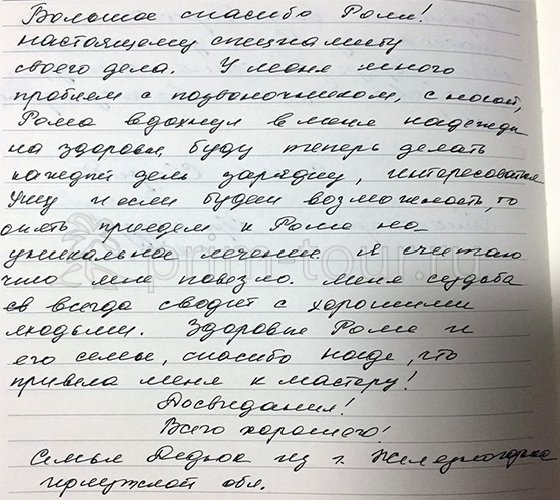 Большое спасибо Роме!
настоящему специалисту
своего дела. У меня много
проблем с позвоночником, с ногой,
Рома вдохнул в меня надежду
на здоровье, буду теперь делать
каждый день зарядку, интересоваться
Ушу и если будет возможность, то
опять приедем к Роме на
уникальное лечение. Я считаю
что мне повезло. меня судьба
всегда сводит с хорошими
людьми. Здоровье Роме и
его семье, спасибо Наде, что
привела меня к мастеру!
Досвидания!
Всего хорошего!
Семья Дедюк из г.
обл.
prim-tour.ru